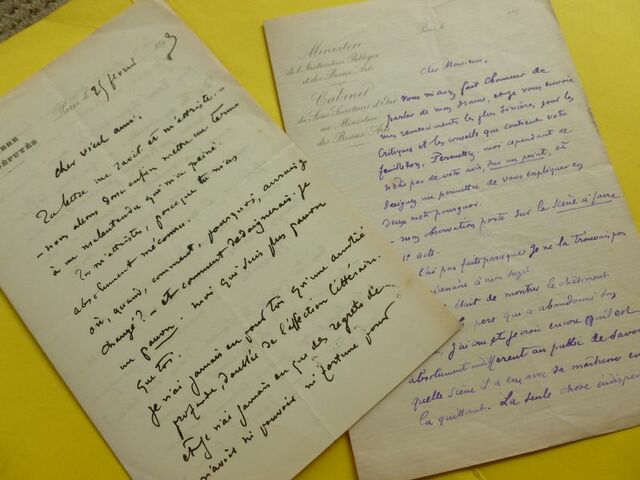 BRE
DÉPUTÉS
Paris, le 25 février 189
Cher vieil ami,
Ta lettre me ravit et m'attriste. –
– nous allons donc enfin mettre un terme
à un malentendu qui m'a peiné.
Tu m'attristes, parce que tu m'as
absolument méconnu.
où, quand, comment, pourquoi, aurais-je
changé? – et comment dédaignerais-je
un pauvre moi qui suis plus pauvre
que toi.
Je n'ai jamais eu pour toi qu'une amitié
profonde, doublée de l'affection littéraire.
et je n'ai jamais eu que des regrets de
n'avoir ni pouvoir ni fortune pour
Ministère
de l'Instruction Publique
et des Beaux Arts
Cabinet
du Sous Secrétaire d'État
au Ministère
des Beaux Arts
Paris, le 187
Cher Monsieur,
Vous m'avez fait l'honneur de
parler de mon drame, et je vous envoie
mes remerciements les plus sincères pour les
critiques et les conseils que contient votre
feuilleton. Permettez moi cependant de
n'être pas de votre avis, sur un point, et
daignez me permettre de vous expliquer en
deux mots pourquoi.
– mon observation porte sur la scène à faire
1er acte.
l'ai pas faite parce que je ne la trouvais pas
nécessaire à mon sujet
était de montrer le châtiment
père qui a abandonné son
J'ai cru et je crois encore qu'il est
absolument indifférent au public de savoir
quelle scène il a eu avec sa maîtresse en
la quittant. La seule chose indispen